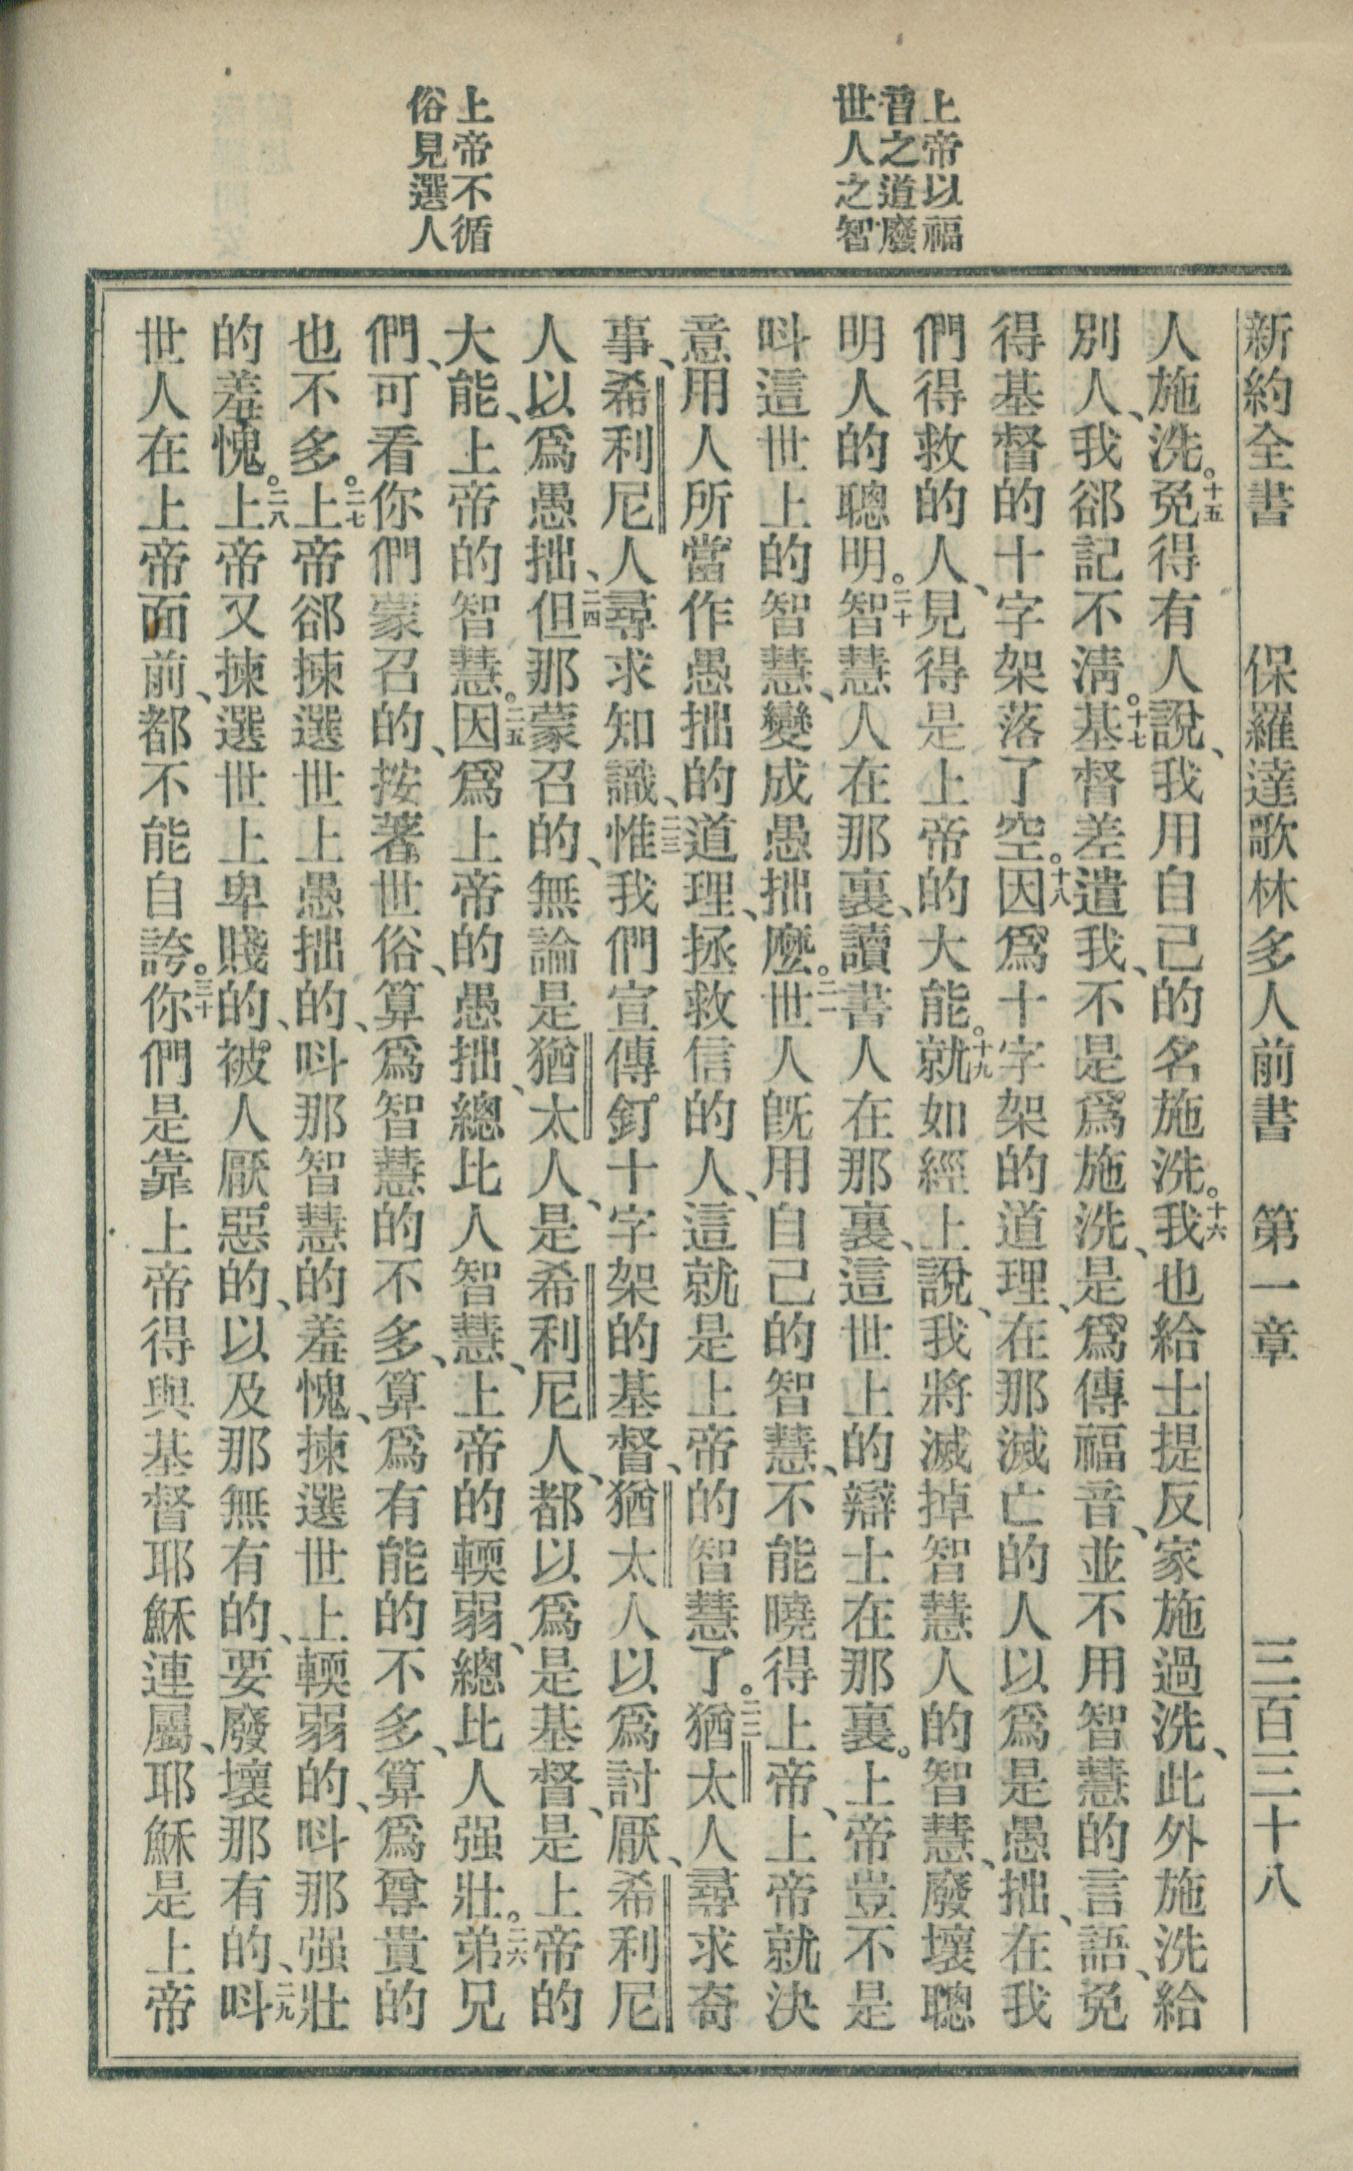 新約全書 保羅達歌林多人前書 第一章 三百三十八
上帝以福
音之道廢
世人之智
上帝不循
俗見選人
人施洗。十五免得有人說、我用自己的名施洗。十六我也給士提反家施過洗、此外施洗給
別人、我郤記不清。十七基督差遣我、不是爲施洗、是爲傳福音、並不用智慧的言語、免
得基督的十字架落了空。十八因爲十字架的道理、在那滅亡的人以爲是愚拙、在我
們得救的人、見得是上帝的大能。十九就如經上說、我將滅掉智慧人的智慧、廢壞聰
明人的聰明。二十智慧人在那裏、讀書人在那裏、這世上的辯士在那裏。上帝豈不是
呌這世上的智慧、變成愚拙麽。二一世人旣用自己的智慧、不能曉得上帝、上帝就決
意用人所當作愚拙的道理、拯救信的人、這就是上帝的智慧了。二二猶太人尋求奇
事、希利尼人尋求知識、二三惟我們宣傳釘十字架的基督、猶太人以爲討厭、希利尼
人以爲愚拙、二四但那蒙召的、無論是猶太人、是希利尼人、都以爲是基督、是上帝的
大能、上帝的智慧。二五因爲上帝的愚拙、總比人智慧、上帝的輭弱、總比人强壯。二六弟兄
們、可看你們蒙召的、按著世俗、算爲智慧的不多、算爲有能的不多、算爲尊貴的
也不多。二七上帝郤揀選世上愚拙的、呌那智慧的羞愧、揀選世上輭弱的、呌那强壯
的羞愧。二八上帝又揀選世上卑賤的、被人厭惡的、以及那無有的、要廢壞那有的、二九呌
世人在上帝面前、都不能自誇。三十你們是靠上帝得與基督耶穌連屬、耶穌是上帝